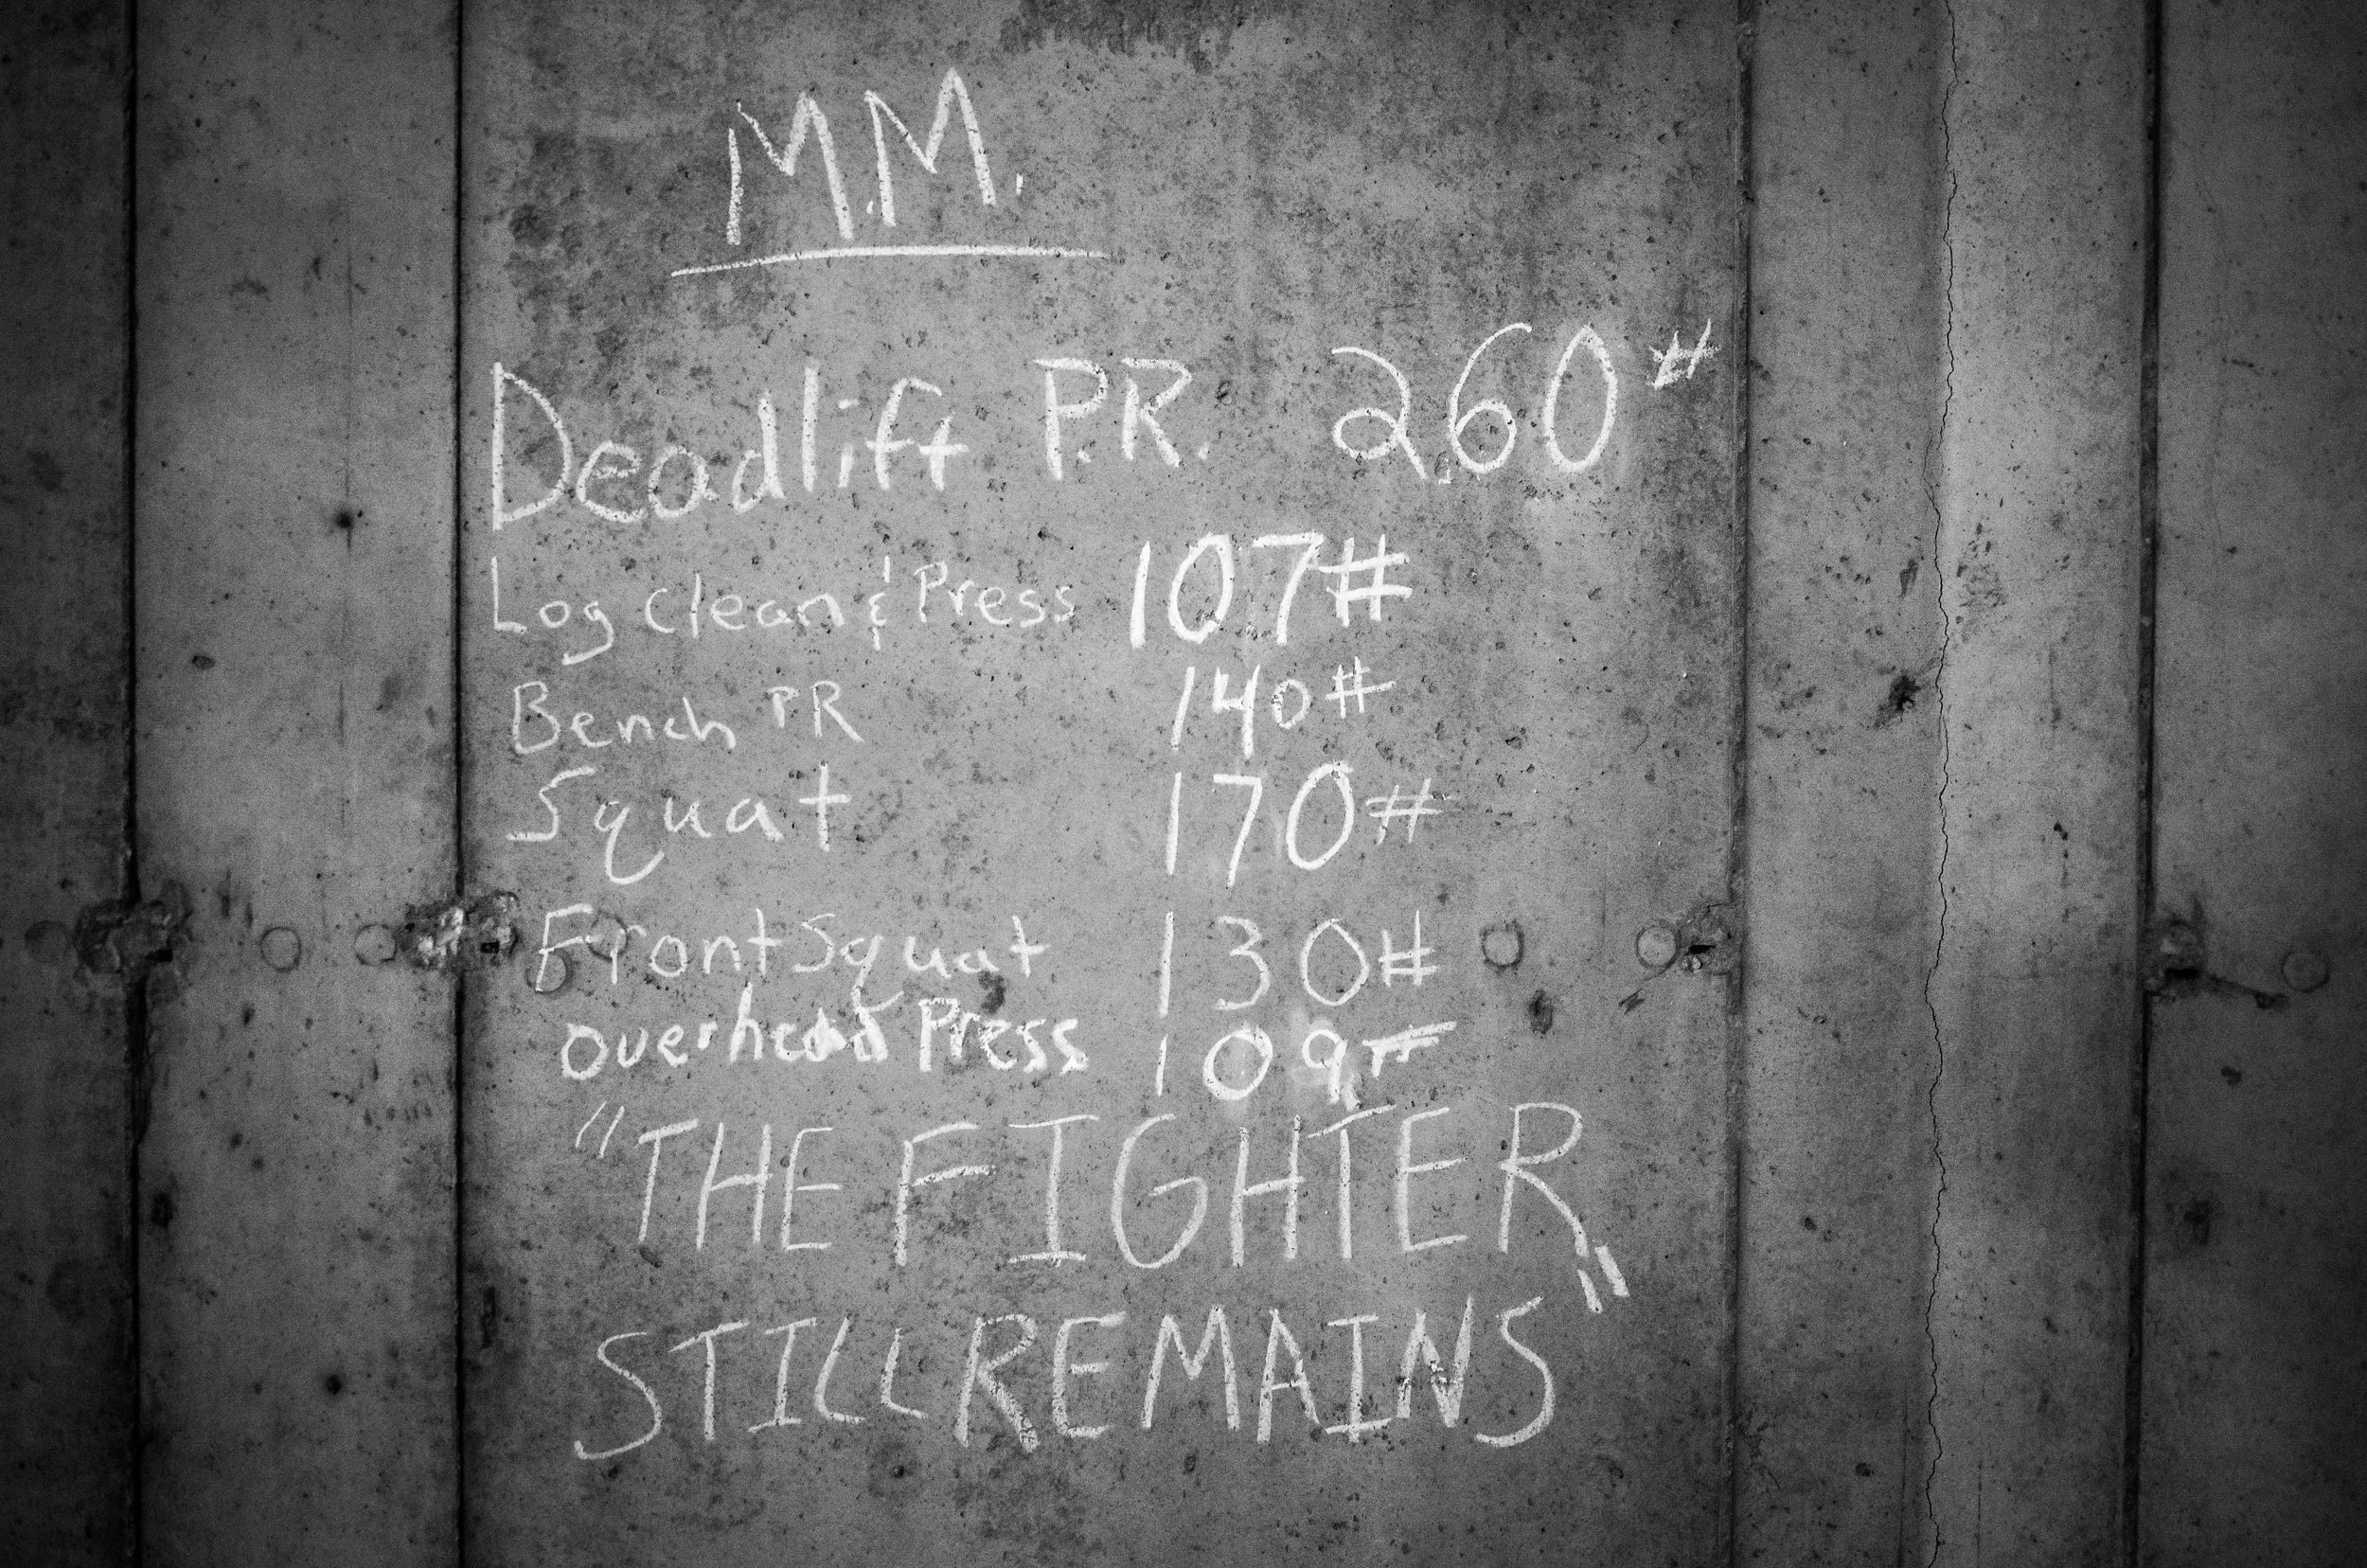 M.M.
Deadlift P.R. 260#
Log Clean & Press 107#
Bench PR 140#
Squat 170#
Front Squat 130#
overhead Press 109#
"THE FIGHTER
STILL REMAINS"